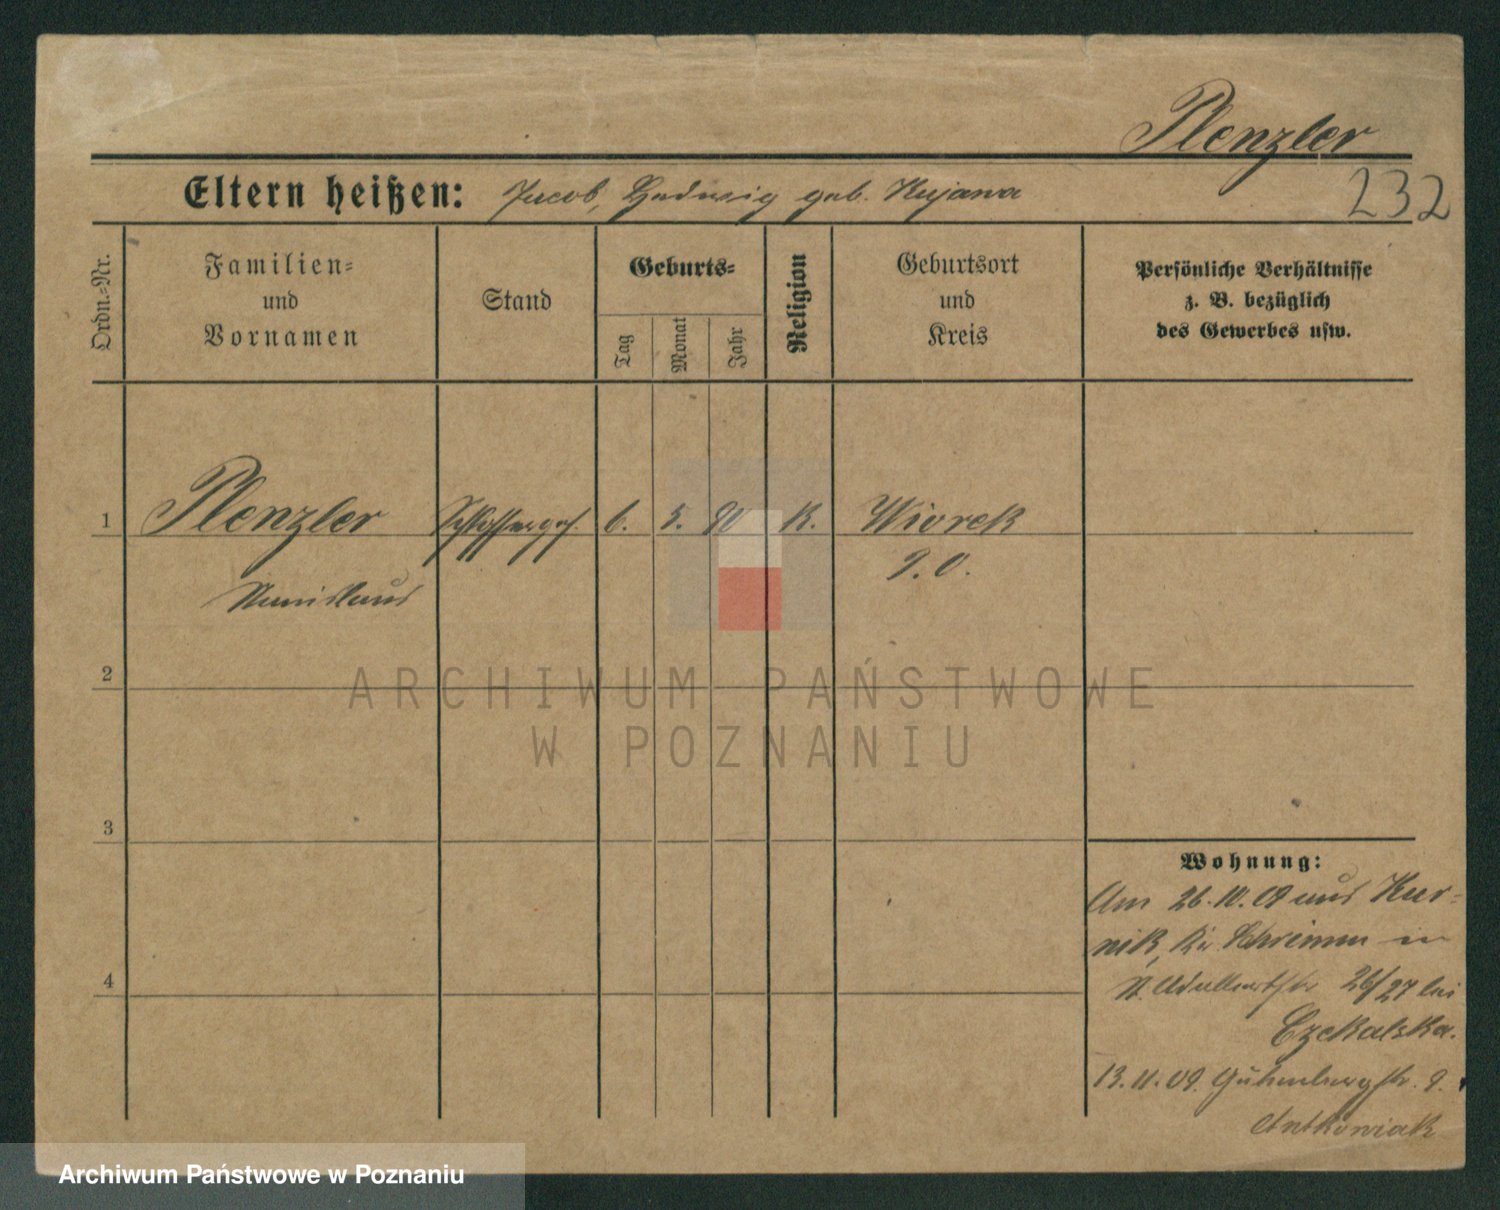 Plenzler
Eltern heißen: Jacob, Hedwig geb. Kujawa
232
Ordn.-Nr.
Familien-
und
Vornamen
Stand
Geburts-
Tag
Monat
Jahr
Religion
Geburtsort
und
Kreis
Persönliche Verhältnisse
z. B. bezüglich
des Gewerbes usw.
1 Plenzler Schlossergef. 6. 5. 90 K. Wiorek
P. O.
Stanislaus
2
ARCHIWUM PAŃSTWOWE
W POZNANIU
3
Wohnung:
Am 26.10.09 aus Kur-
nik, Kr Schrimm in
St. Adalbertstr 26/27 bei
4
Czekalska.
13.11.09. Gutenbergstr. 9.
Antkowiak
Archiwum Państwowe w Poznaniu